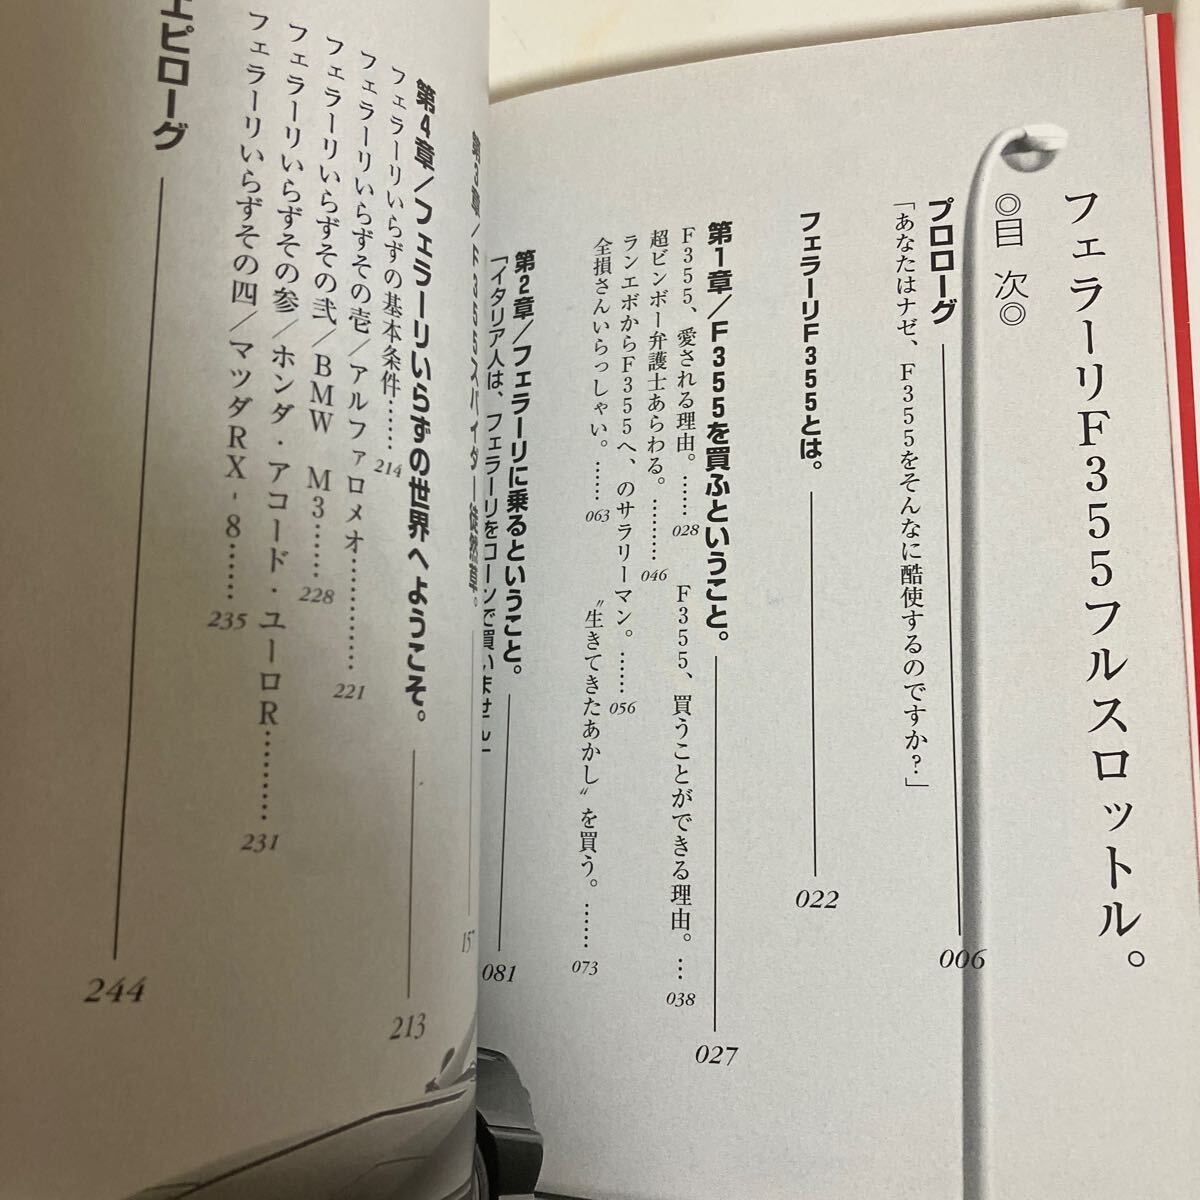 フェラーリF355フルスロットル。
◎目次◎
プロローグ 006
「あなたはナゼ、F355をそんなに酷使するのですか？」
フェラーリF355とは。 022
第1章/F355を買ふということ。 027
F355、愛される理由。…… 028 F355、買うことができる理由。… 038
超ビンボー弁護士あらわる。……… 046
ランエボからF355へ、のサラリーマン。…… 056
全損さんいらっしゃい。…… 063 〝生きてきたあかし〟を買う。…… 073
第2章/フェラーリに乗るということ。 081
「イタリア人は、フェラーリをローンで買いません」
第3章/F355スパイダー徒然草。 15
第4章/フェラーリいらずの世界へようこそ。 213
フェラーリいらずの基本条件…… 214
フェラーリいらずその壱/アルファロメオ………… 221
フェラーリいらずその弐/BMW M3…… 228
フェラーリいらずその参/ホンダ・アコード・ユーロR……… 231
フェラーリいらずその四/マツダRX-8…… 235
エピローグ 244